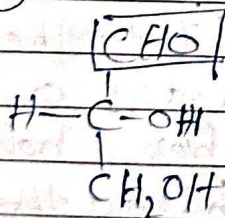 CHO
H-C-OH
CH₂OH